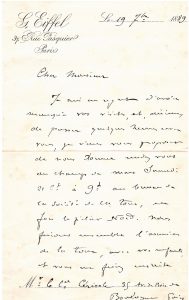 G. Eiffel
37, Rue Pasquier
Paris
Le 19 7bre 1889
Cher Monsieur
Je suis au regret d'avoir
manqué vos visites et désireux
de passer quelques heures avec
vous, je viens vous proposer
de vous donner rendez vous
au champ de mars Samedi
21 ct à 9h au bureau
de la Société de la tour,
pilier Nord. Nous
ferions ensemble l'ascension
de la tour, avec vos enfants
et vous me feriez
Boulogne